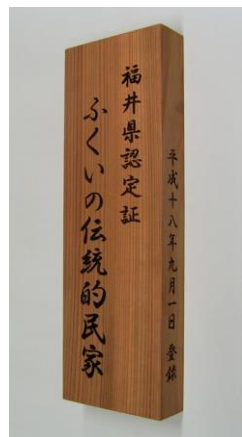 福井県認定証
ふくいの伝統的民家
平成十八年九月一日 登録